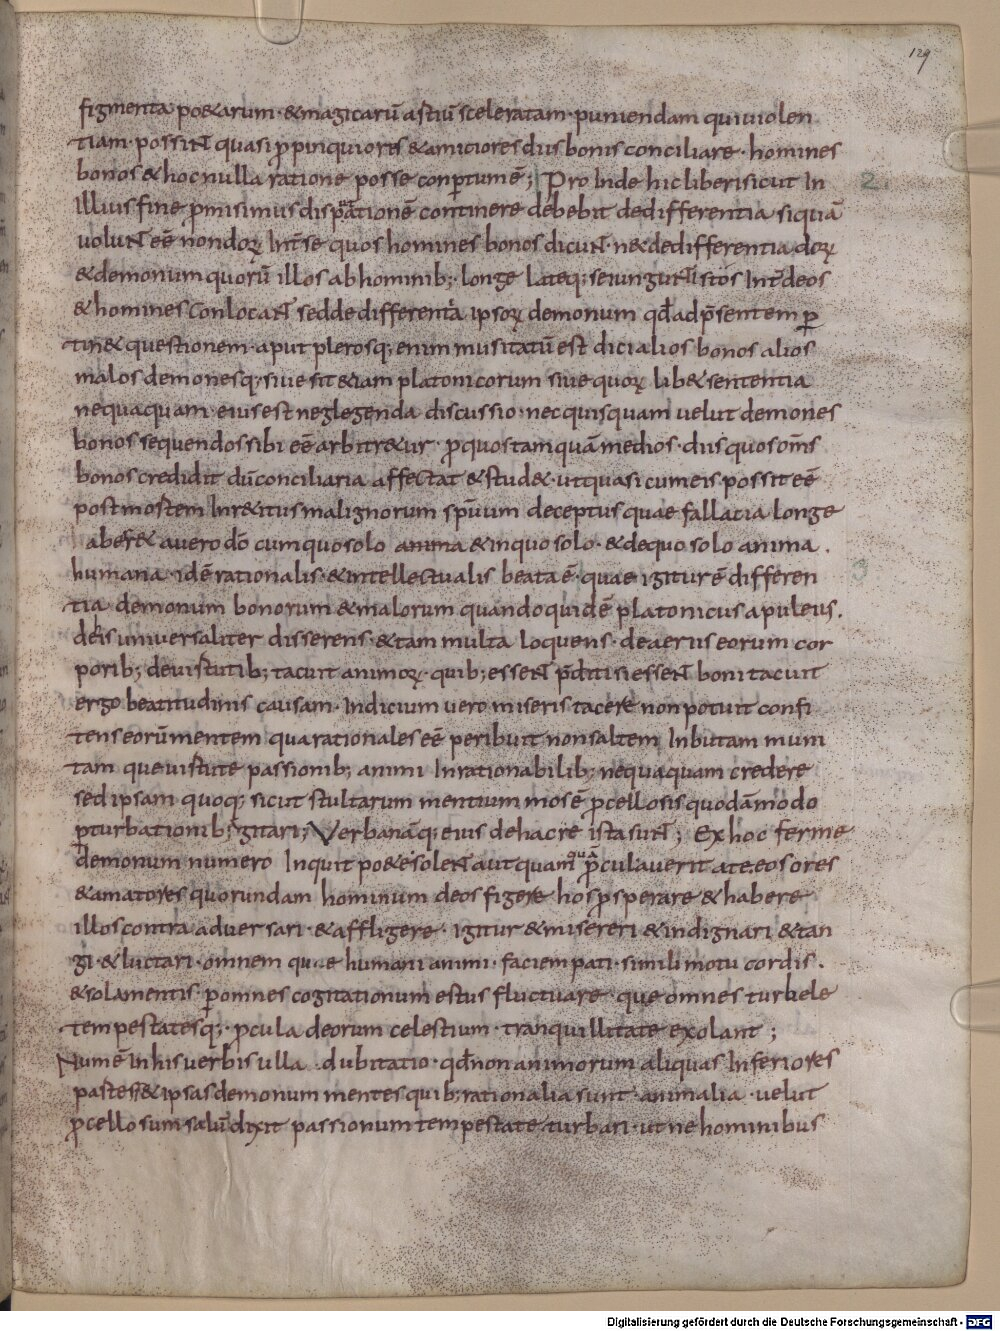 129
figmenta po&arum · &magicarū astiū sceleratam · puniendam qui uiolen
tiam · possiNt quasi p̱pinquiores &amiciores diis bonis conciliare · homines
bonos & hoc nulla ratione posse conp̱tum ē ; Pro Inde hic liber sicut In
2.
Illius fine p̄misimus disputationē continere debebit de differentia si quā
uoluNt eē non doꝝ Int̄ se quos homines bonos dicuNt · nec de differentia doꝝ
& demonum quorū illos ab hominib; · longe lateq; seiunguNt istos Int̄ deos
& homines ConlocaNt sed de differentia ipsoꝝ demonum qđ ad p̄sentem p̱
tin& questionem · aput plerosq; enim musitatū est dici alios bonos alios
malos demones q; siue sit &iam platonicorum siue quoꝝ lib& sententia
nequaquam · eius est neglegenda discussio · nec quisquam uelut demones
bonos sequendos sibi eē arbitr&ur · p̱ quos tam quā medios · diis quos om̄s
bonos credidit dū conciliaria affectat & stud& · ut quasi cum eis possit eē
post mostem Inr&itus malignorum sp̄uum deceptus quae fallatia longe
aberr& a uero dō cum quo solo anima & in quo solo · & de quo solo anima ·
humana · id ē rationalis · & intellectualis beata ē · quae igitur ē differen
3
tia demonum bonorum & malorum quando quidē platonicus apuleus ·
de his uniuersaliter disserens · & tam multa loquens · de aeriis eorum cor
porib; de uistutib; tacuit animoꝝ · quib; esseNt p̄diti si esseNt boni tacuit
ergo beatitudinis causam · Indicium uero miseris tacere non potuit confi
tens eorū mentem qua rationales eē peribuit non saltem Inbutam muni
tam que uistute passionib; animi Inrationabilib; nequaquam credere
sed ipsam quoq; sicut stultarum mentium mos ē p̱cellosis quodāmodo
p̱turbationib; agitari ; Verba nāq; eius de hac re ista suNt ; Ex hoc ferme
demonum numero Inquit po&e soleNt aut quamquā p̱cul a uerit ate · eosores
& amatores quorundam hominum deos figere hos p̱sperare & habere
illos contra aduersari · & affligere · igitur & misereri & indignari & tan
gi · & luctari · omnem que humani animi · faciem pati · simili motu cordis ·
& solamentis · p̱ omnes cogitationum estus fluctuare · que omnes turbele
tempestatesq; · p̱cul a deorum celestium · tranquillitate exolant ;
Num ē In his uerbis ulla · dubitatio · qđ non animorum aliquas Inferiores
pastes s& ipsas demonum mentes quib; rationalia sunt · animalia · uelut
p̱cellosum salū dixit passionum tempestate turbari · ut ne hominibus
Digitalisierung gefördert durch die Deutsche Forschungsgemeinschaft - DFG